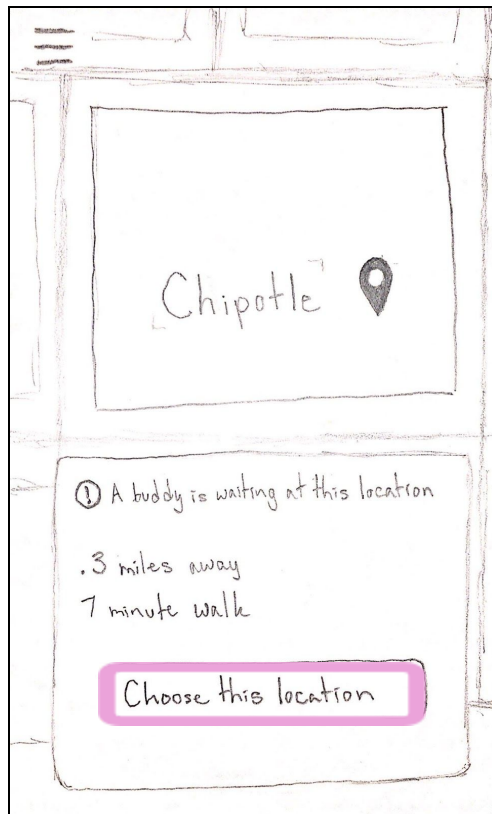 Chipotle
! A buddy is waiting at this location
.3 miles away
7 minute walk
Choose this location